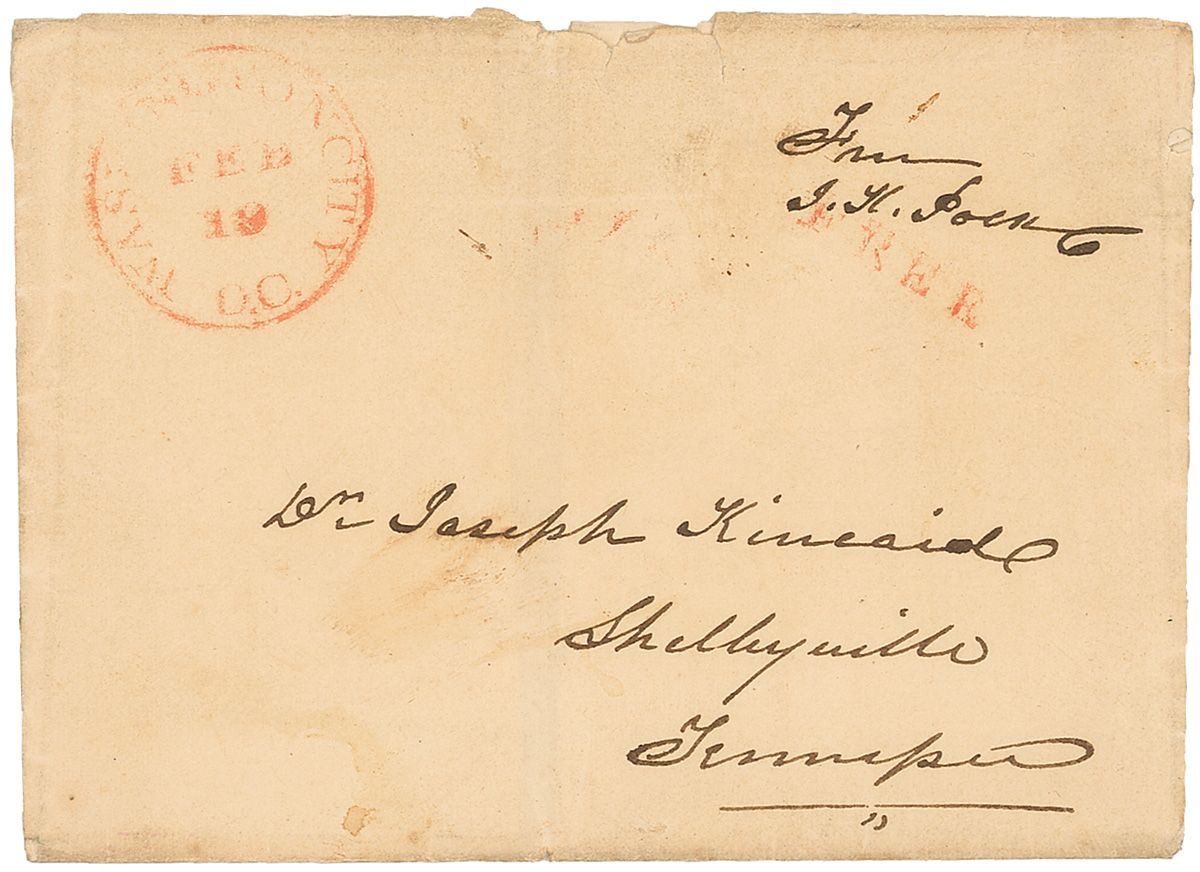 WASHINGTON CITY D.C.
FEB
19
Free
J. K. Polk
FREE
Dr Joseph Kincaid
Shelbyville
Tennessee